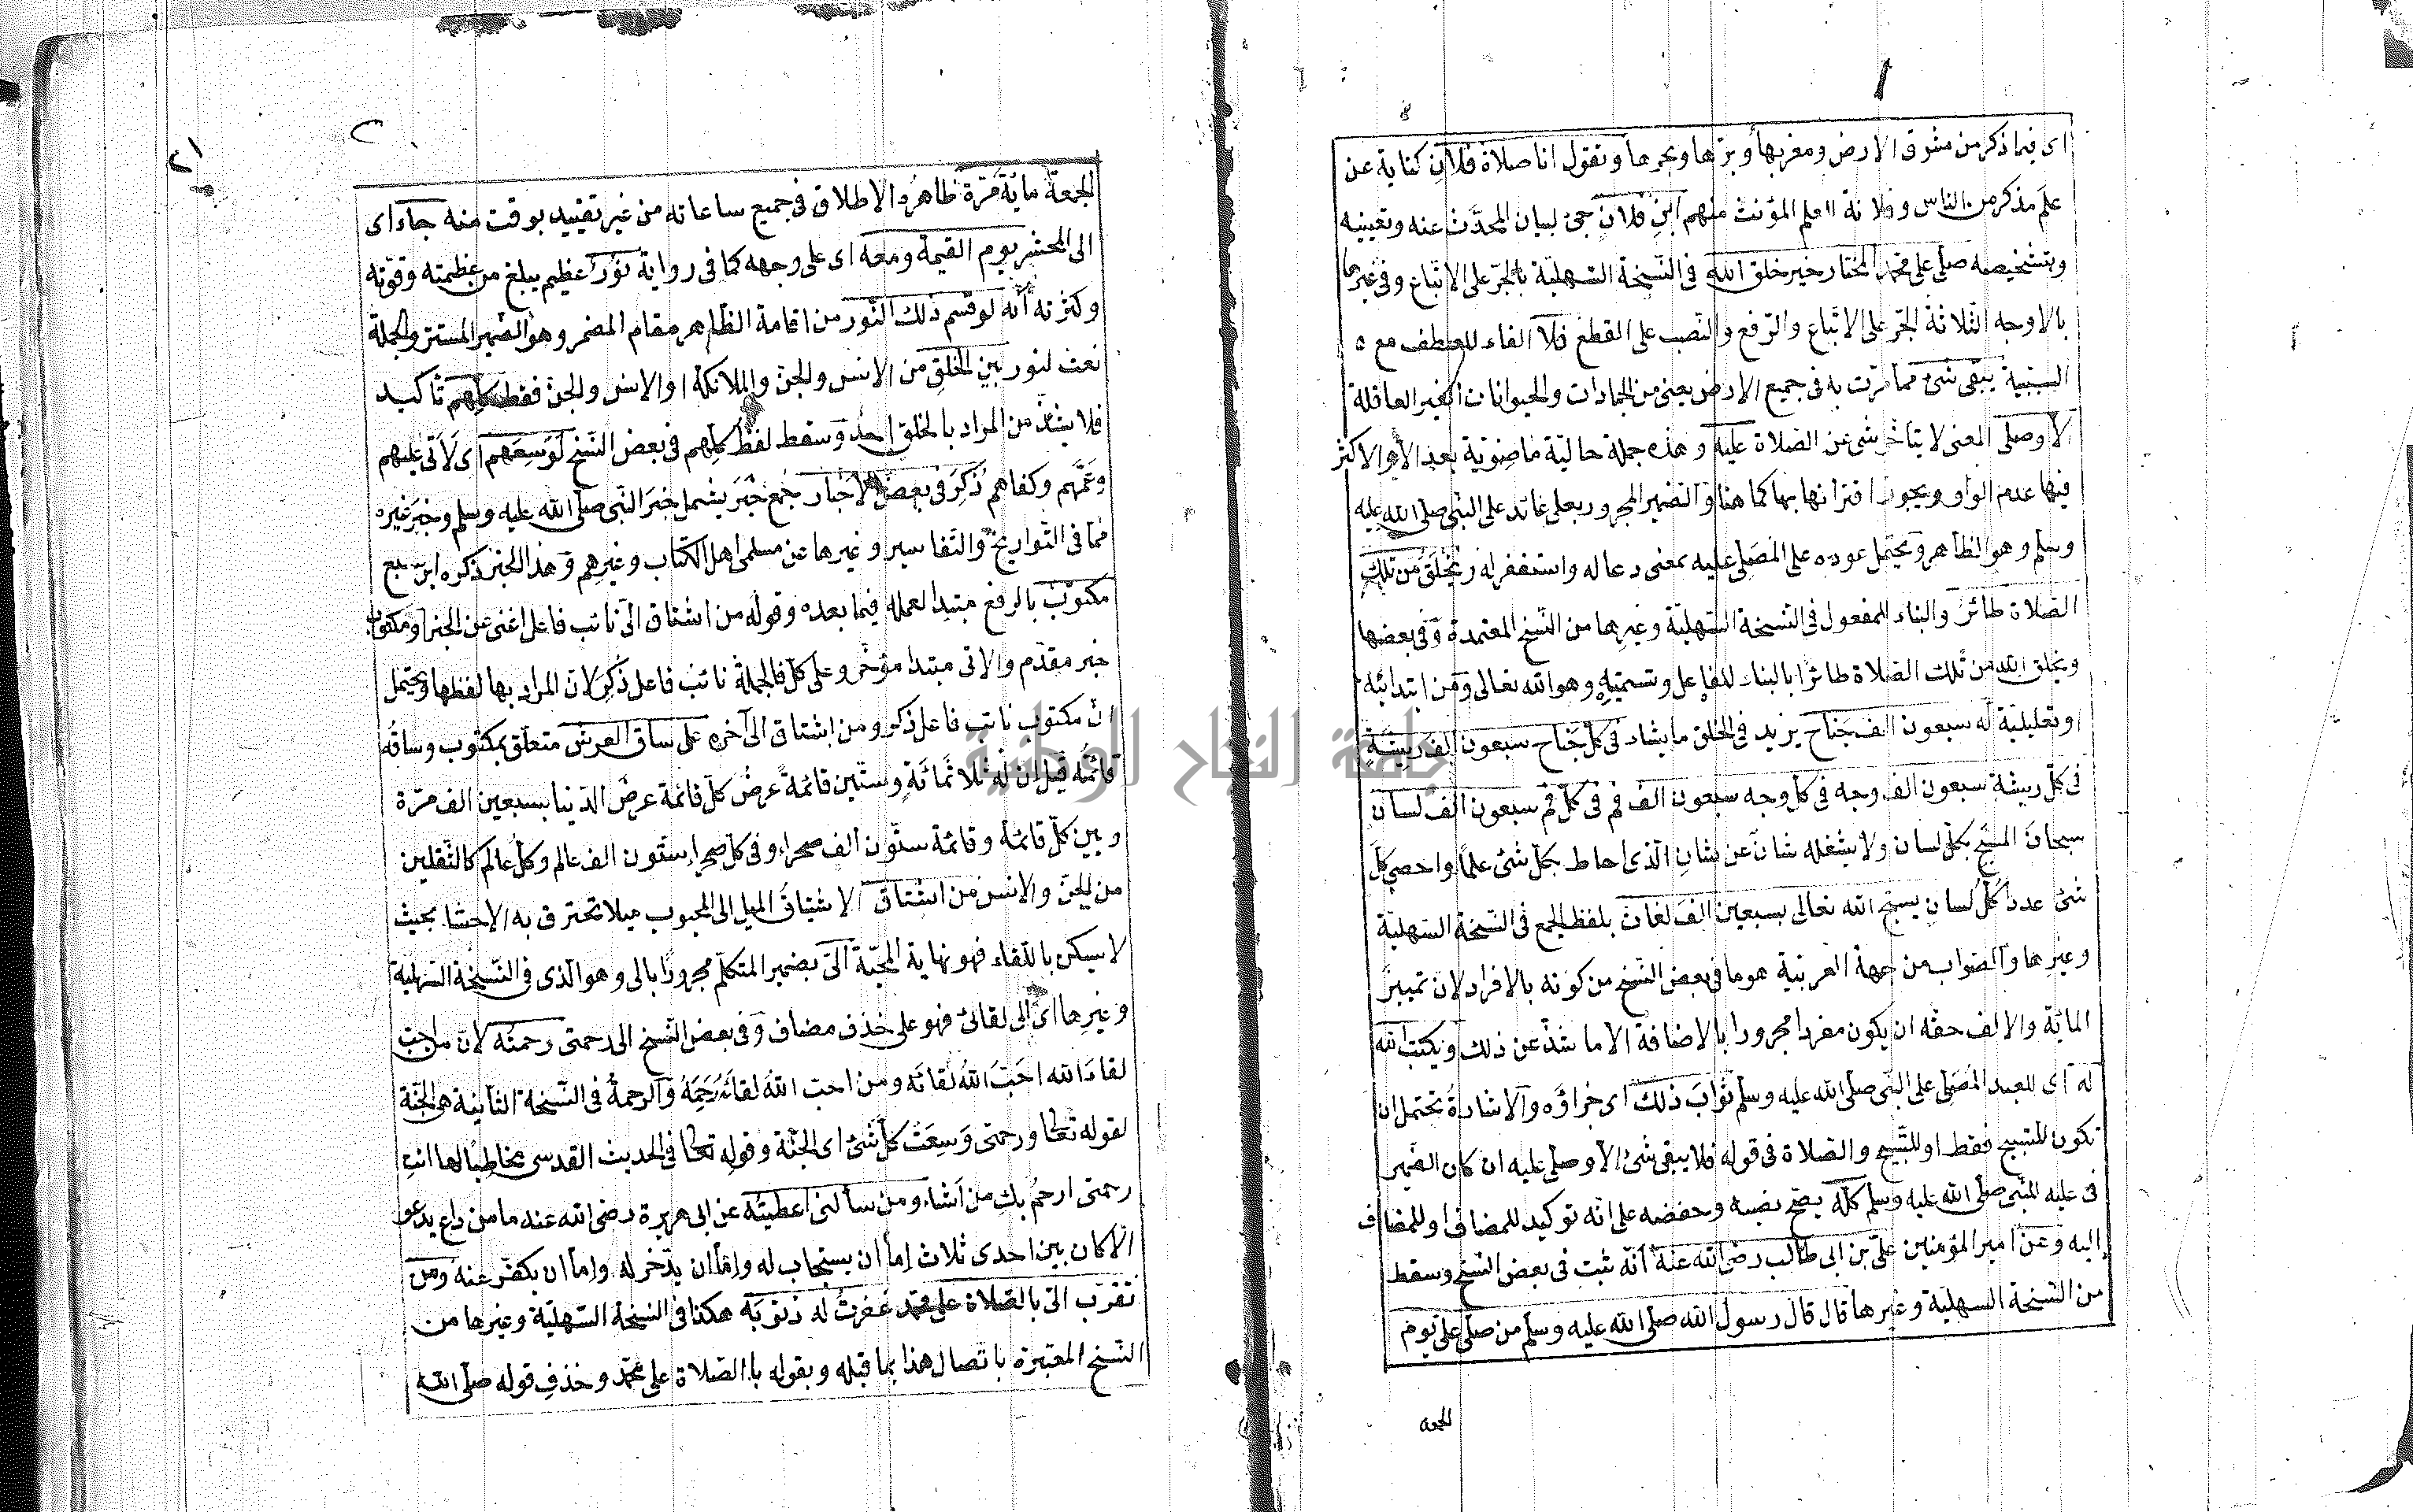 اى فيما ذكر من مشرق الارض ومغربها وبرّها وبحرها وتقول انا صلاة فلان كناية عن
علم مذكر من الناس وفلانة العلم المؤنث منهم ابن فلان جئ لبيان المحدّث عنه وتعيينه
وتشخيصه صلى على محمد المختار خير خلق الله فى النسخة السهلية بالجرّ على الاتباع وفى غيرها
بالاوجه الثلاثة الجرّ على الاتباع والرّفع والنّصب على القطع فلا الفاء للعطف مع
السببية يبقى شئ مما مرّت به فى جميع الارض يعنى من الجمادات والحيوانات الغير العاقلة
الا وصلى المعنى لا يتأخر شئ عن الصّلاة عليه وهذه جملة حاليّة ماضوية بعد الاّ والاكثر
فيها عدم الواو ويجوز اقترانها بها كما هنا والضمير المجرور بعلى عائد على النبى صلى الله عليه
وسلم وهو الظاهر ويحتمل عوده على المصلى عليه بمعنى دعا له واستغفر له ويخلق من تلك
الصّلاة طائر والبناء للمفعول فى النسخة السهليّة وغيرها من النّسخ المعتمدة وفى بعضها
ويخلق الله من تلك الصلاة طائرا بالبناء للفاعل وتسميته وهو الله تعالى ومن ابتدائية
او تعليليّة له سبعون الف جناح يزيد فى الخلق ما يشاء فى كلّ جناح سبعون الف ريشة
فى كلّ ريشة سبعون الف وجه فى كل وجه سبعون الف فم فى كلّ فم سبعون الف لسان
سبحان المسبّح بكلّ لسان ولا يشغله شان عن شان الّذى احاط بكلّ شئ علمًا واحصى كلّ
شئ عددا كلّ لسان يسبّح الله تعالى بسبعين الف لغات بلفظ الجمع فى النّسخة السّهليّة
وغيرها والصّواب من جهة العربية هو ما فى بعض النّسخ من كونه بالافراد لان تمييز
الماية والالف حقّه ان يكون مفردا مجرورا بالاضافة الا ما شذّ عن ذلك ويكتب الله
له اى للعبد المُصَلّى على النّبى صلّى الله عليه وسلّم ثواب ذلك اى جزاؤه والاشارة تحتمل ان
تكون للتسبيح فقط او للتّسبيح والصّلاة فى قوله فلا يبقى شئ الاّ وصلّى عليه ان كان الضّمير
فى عليه للنّبى صلّى الله عليه وسلّم كلّه يصحّ نصبه وخفضه على انّه توكيد للمضاف او للمضاف
اليه وعن امير المؤمنين علىّ بن ابى طالب رضى الله عنه انّه ثبت فى بعض النّسخ وسقط
من النّسخة السهليّة وغيرها قال قال رسول الله صلّى الله عليه وسلّم من صلّى علىّ يوم
الجمعه
الجمعة ماية مرّة ظاهره الاطلاق فى جميع ساعاته من غير تقييد بوقت منه جاء اى
الى المحشر يوم القيمة ومعه اى على وجهه كما فى رواية نور عظيم يبلغ من عظمته وقوّته
وكثرته انّه لو قسم ذلك النّور من اقامة الظاهر مقام المضمر وهو الضّمير المستتر والجملة
نعت لنور بين الخلق من الانس والجنّ والملائكة او الانس والجنّ فقط كلهم تأكيد
فلا يشذّ من المراد بالخلق احد وسقط لفظ كلّهم فى بعض النّسخ لَوَسِعَهم اى لأتى عليهم
وعمّهم وكفاهم ذُكِرَ فى بعض الاخبار جمع خبر يشمل خبر النّبى صلى الله عليه وسلم وخبر غيره
ممّا فى التّواريخ والتّفاسير وغيرها عن مسلمى اهل الكتاب وغيرهم وهذا الخبر ذكره ابن سبع
مكتوب بالرفع مبتدا لعمله فيما بعده وقوله من اشتاق الىّ نائب فاعل اغنى عن الخبر او مكتوب
خبر مقدّم والاتى مبتدا مؤخر وعلى كلّ فالجملة نائب فاعل ذُكِرَ لان المراد بها لفظها ويحتمل
انّ مكتوب نائب فاعل ذكر ومن اشتاق الى آخره على ساق العرش متعلّق بمكتوب وساقه
قائمته قيل ان له ثلاثمائة وستّين قائمة عرض كلّ قائمة عرض الدّنيا بسبعين الف مرّة
وبين كلّ قائمة وقائمة ستّون الف صحراء وفى كلّ صحراء ستّون الف عالم وكلّ عالم كالثّقلين
من الجنّ والانس من اشتاق الاشتياق الميل الى المحبوب ميلا تحترق به الاحشاء بحيث
لا يسكن باللّقاء فهو نهاية المحبّة الىّ بضمير المتكلّم مجرورًا بالى وهو الّذى فى النّسخة السّهلية
وغيرها اى الى لقائى فهو على حذف مضاف وفى بعض النّسخ الى رحمتى رحمته لانّ من احبّ
لقاءَ الله احَبَّ اللهُ لقائه ومن احب اللهُ لقائه رَحِمَهُ والرحمةُ فى النّسخة الثانية هى الجنّة
لقوله تعالى ورحمتى وَسِعَتْ كلّ شئ اى الجنّة وقوله تعالى فى الحديث القدسى مخاطبًا لها انت
رحمتى ارحمُ بكِ من اَشاء ومن سألنى اعطيته عن ابى هريرة رضى الله عنه ما من داع يدعو
الا كان بين احدى ثلاث إما ان يستجاب له وامّا ان يدّخر له وامّا ان يكفّر عنه ومن
تقرّب الىّ بالصّلاة على محمّد غفرتُ له ذنوبه هكذا فى النسخة السّهليّة وغيرها من
النّسخ المعتبرة باتّصال هذا بما قبله وبقوله بالصّلاة على محمّد وحذف قوله صلّى الله
جامعة النجاح الوطنية